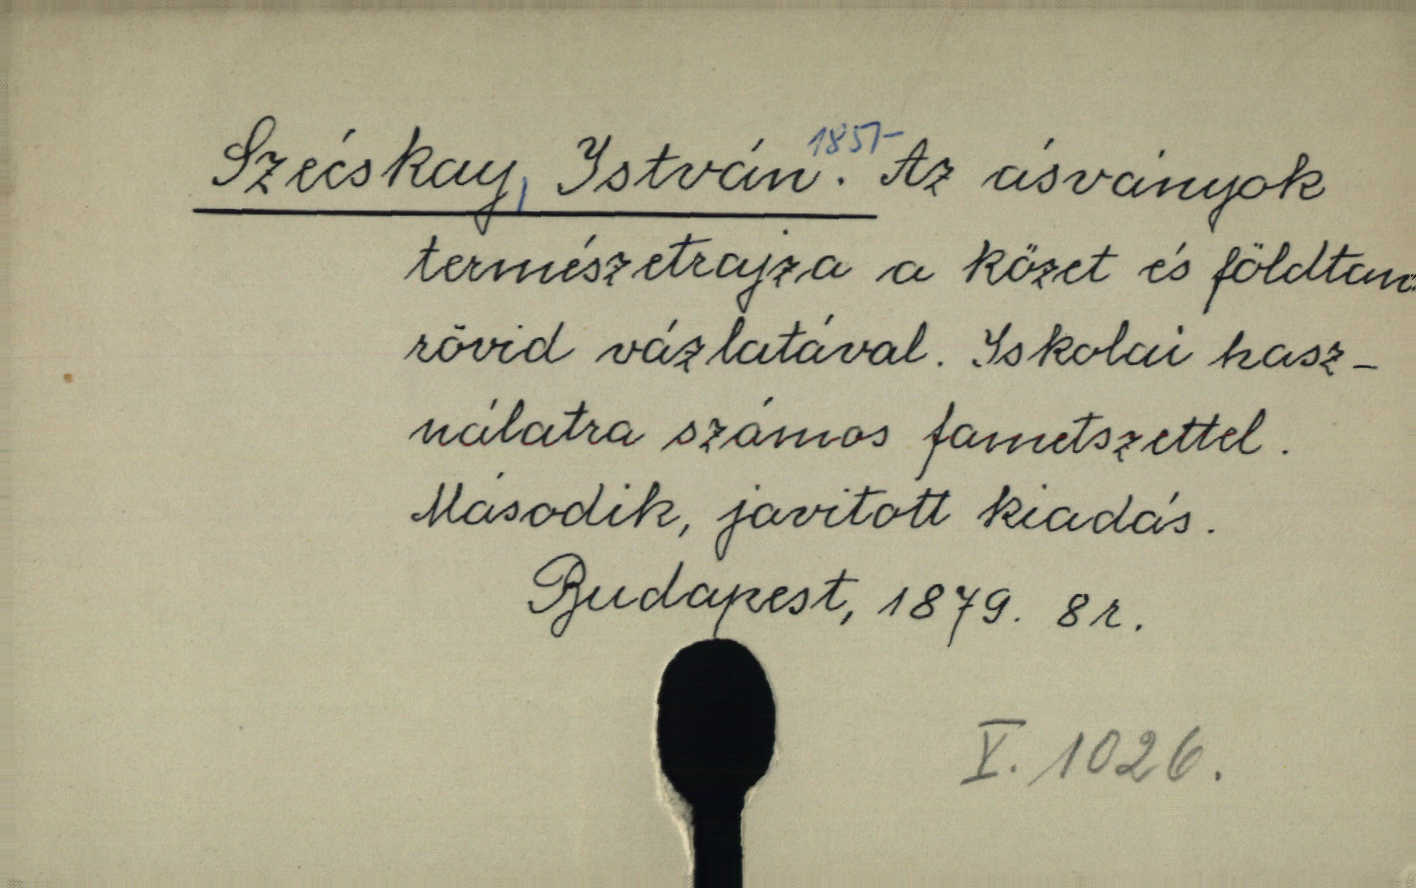 Szécskay, István. 1851- Az ásványok
természetrajza a kőzet és földtan
rövid vázlatával. Iskolai hasz-
nálatra számos fametszettel.
Második, javitott kiadás.
Budapest, 1879. 8 r.
V. 1026.